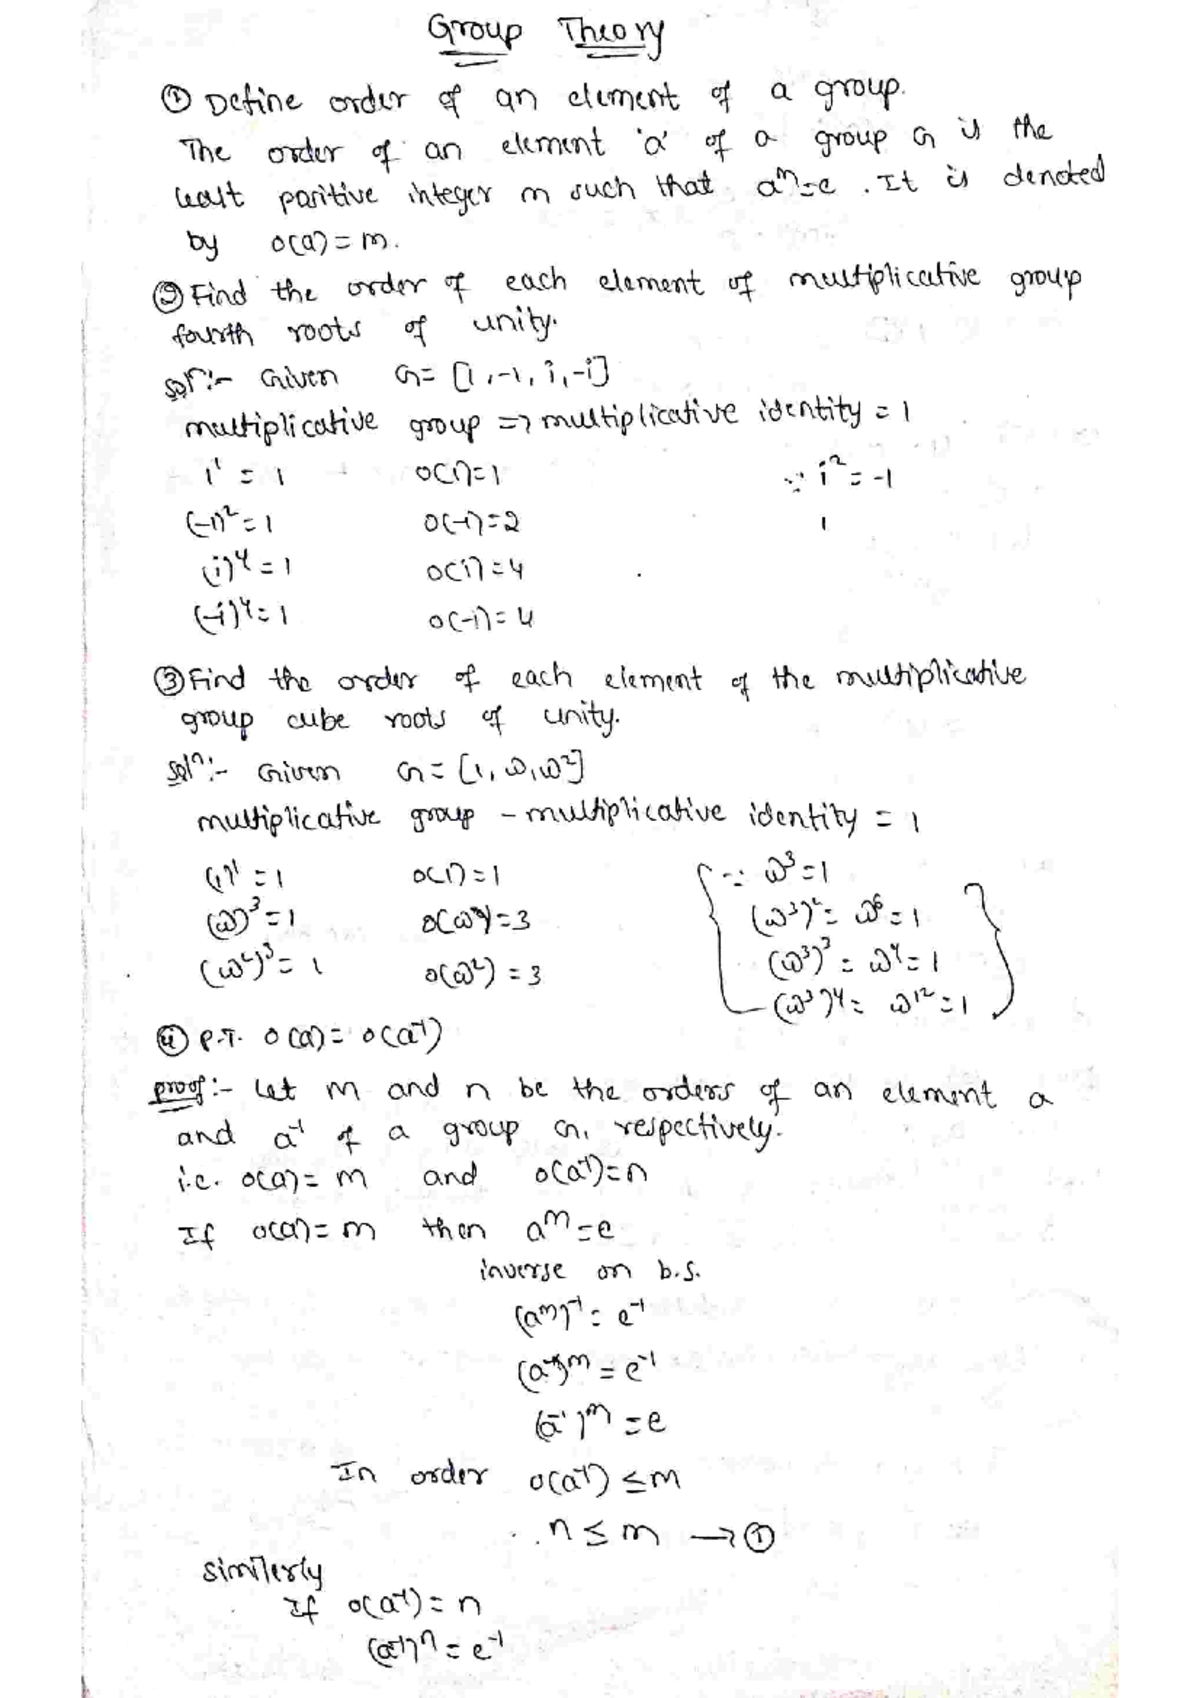 Group Theory
① Define order of an element of a group.
The order of an element 'a' of a group G is the
least positive integer m such that a^m=e. It is denoted
by o(a)=m.
② Find the order of each element of multiplicative group
fourth roots of unity.
Sol^n:- Given G= [1, -1, i, -i]
multiplicative group => multiplicative identity = 1
1^1 = 1 o(1)=1 ∵ i^2 = -1
(-1)^2 = 1 o(-1)=2 1
(i)^4 = 1 o(i)=4
(-i)^4 = 1 o(-i)=4
③ Find the order of each element of the multiplicative
group cube roots of unity.
Sol^n:- Given G= [1, ω, ω^2]
multiplicative group - multiplicative identity = 1
(1)^1 = 1 o(1)=1 ∵ ω^3=1
(ω)^3 = 1 o(ω)=3 (ω^3)^2 = ω^6 = 1
(ω^2)^3 = 1 o(ω^2) = 3 (ω^3)^3 = ω^9 = 1
(ω^3)^4 = ω^12 = 1
④ P.T. o(a) = o(a^-1)
proof:- Let m and n be the orders of an element a
and a^-1 of a group G, respectively.
i.e. o(a)= m and o(a^-1)=n
If o(a)= m then a^m=e
inverse on b.s.
(a^m)^-1 = e^-1
(a^-1)^m = e^-1
(a^-1)^m = e
In order o(a^-1) ≤ m
n ≤ m → ①
Similerly
If o(a^-1) = n
(a^-1)^n = e^-1